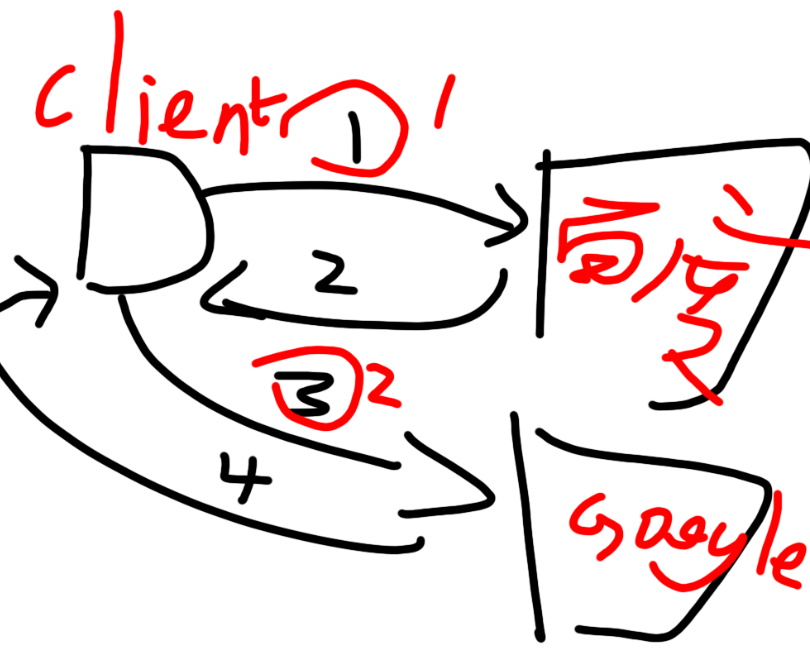 client ① 1
百度
2
③ 2
4
Google